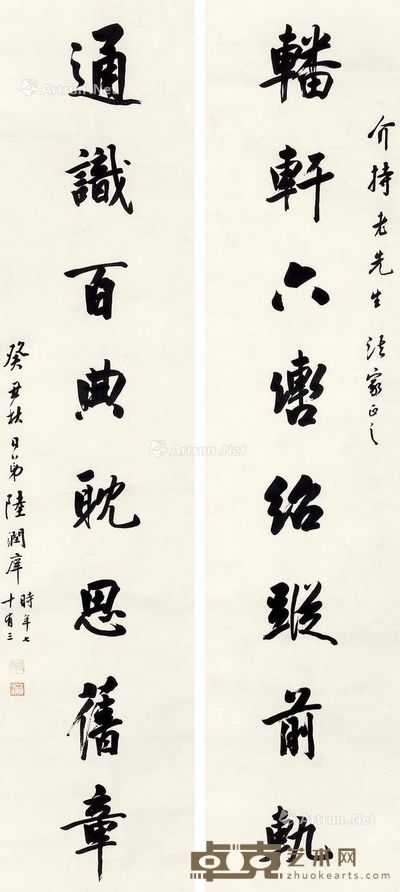 介持老先生法家正之
轓軒六轡紹蹤前軌
通識百典耽思舊章
癸丑秋日弟陸潤庠時年七
十有三
Artron.Net
Artron.Net
Artron.Net
Artron.Net
卓克艺术网
www.zhuokearts.com